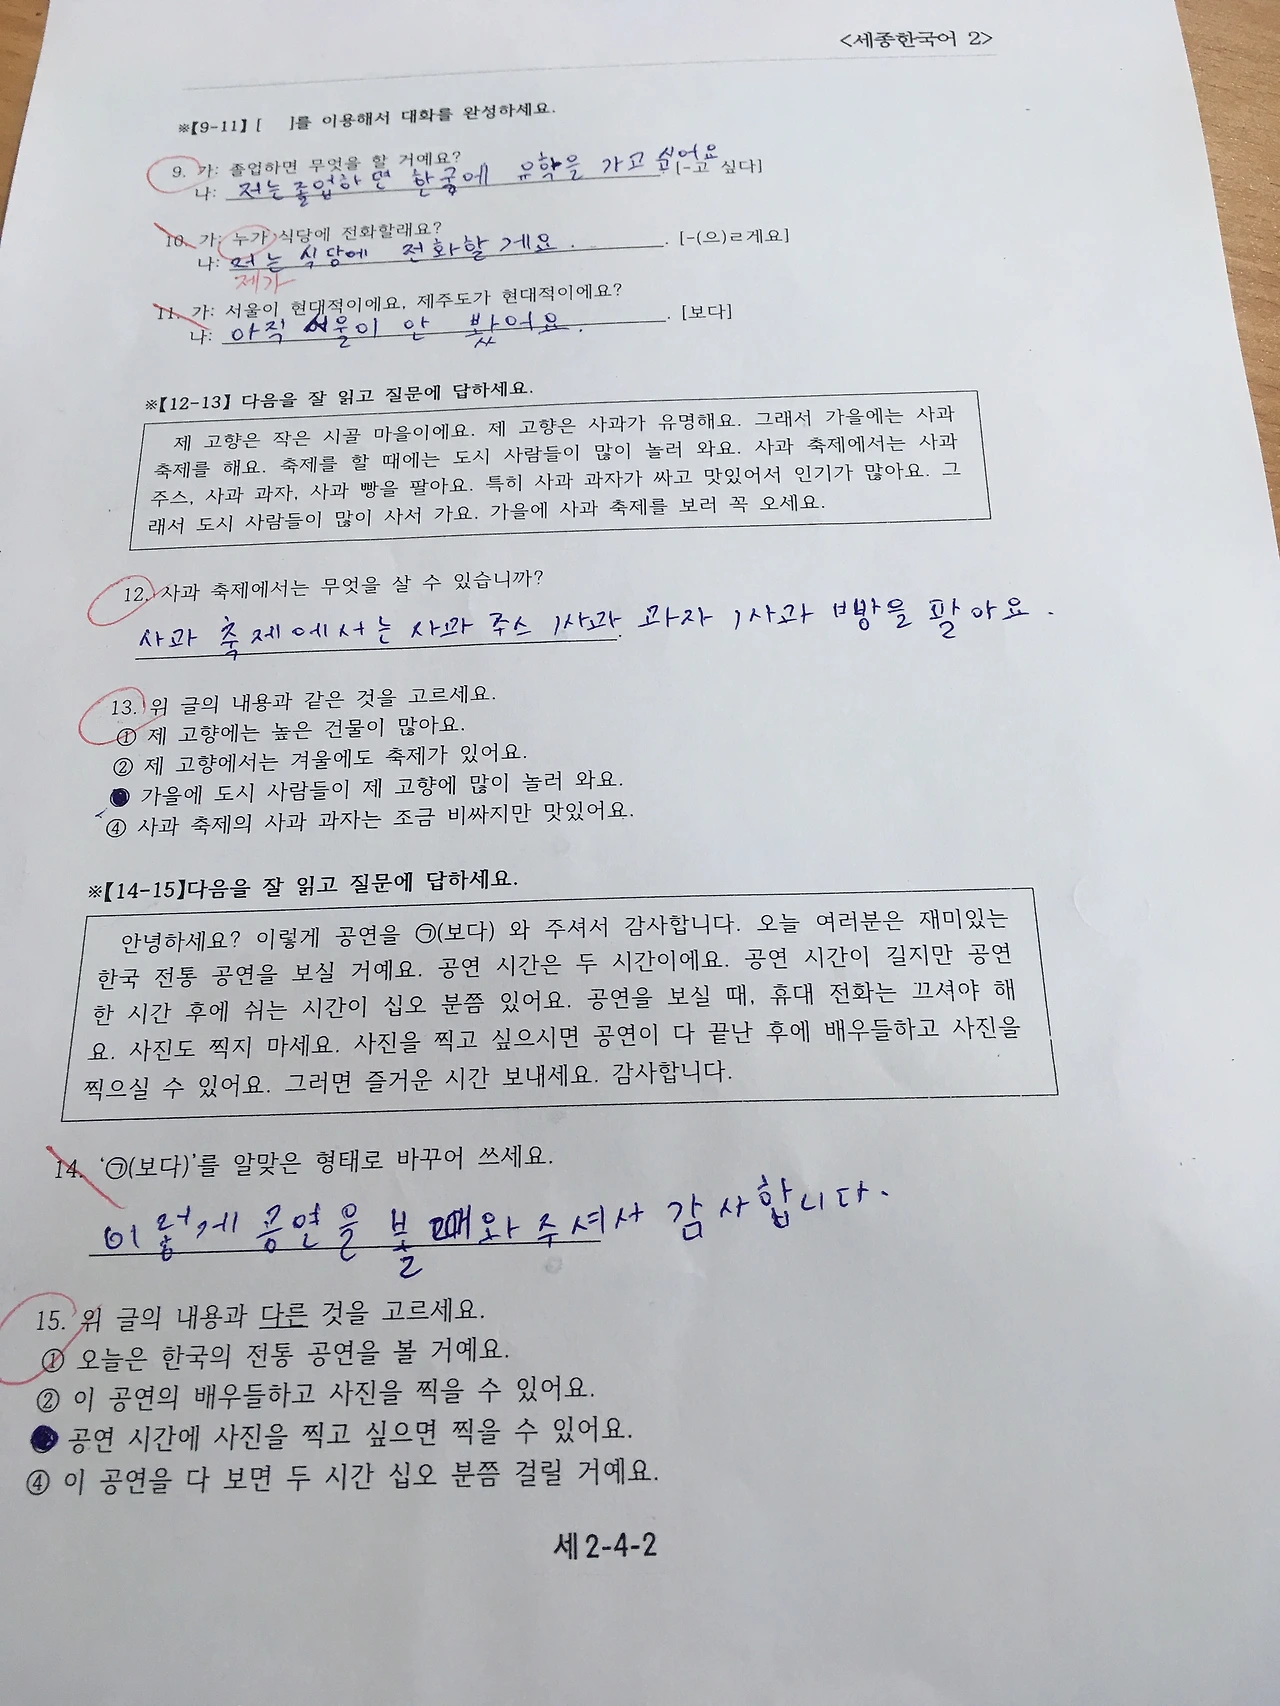 <세종한국어 2>
※【9-11】 [ ]를 이용해서 대화를 완성하세요.
9. 가: 졸업하면 무엇을 할 거예요?
나: 저는 졸업하면 한국에 유학을 가고 싶어요 [-고 싶다]
10. 가: 누가 식당에 전화할래요?
나: 저는 식당에 전화할게요. . [-(으)ㄹ게요]
제가
11. 가: 서울이 현대적이에요, 제주도가 현대적이에요?
나: 아직 서울이 안 봤어요. . [보다]
※【12-13】 다음을 잘 읽고 질문에 답하세요.
제 고향은 작은 시골 마을이에요. 제 고향은 사과가 유명해요. 그래서 가을에는 사과
축제를 해요. 축제를 할 때에는 도시 사람들이 많이 놀러 와요. 사과 축제에서는 사과
주스, 사과 과자, 사과 빵을 팔아요. 특히 사과 과자가 싸고 맛있어서 인기가 많아요. 그
래서 도시 사람들이 많이 사서 가요. 가을에 사과 축제를 보러 꼭 오세요.
12. 사과 축제에서는 무엇을 살 수 있습니까?
사과 축제에서는 사과 주스, 사과 과자, 사과 빵을 팔아요.
13. 위 글의 내용과 같은 것을 고르세요.
① 제 고향에는 높은 건물이 많아요.
② 제 고향에서는 겨울에도 축제가 있어요.
가을에 도시 사람들이 제 고향에 많이 놀러 와요.
④ 사과 축제의 사과 과자는 조금 비싸지만 맛있어요.
※【14-15】다음을 잘 읽고 질문에 답하세요.
안녕하세요? 이렇게 공연을 ㉠(보다) 와 주셔서 감사합니다. 오늘 여러분은 재미있는
한국 전통 공연을 보실 거예요. 공연 시간은 두 시간이에요. 공연 시간이 길지만 공연
한 시간 후에 쉬는 시간이 십오 분쯤 있어요. 공연을 보실 때, 휴대 전화는 끄셔야 해
요. 사진도 찍지 마세요. 사진을 찍고 싶으시면 공연이 다 끝난 후에 배우들하고 사진을
찍으실 수 있어요. 그러면 즐거운 시간 보내세요. 감사합니다.
14. ‘㉠(보다)’를 알맞은 형태로 바꾸어 쓰세요.
이렇게 공연을 볼 때와 주셔서 감사합니다.
15. 위 글의 내용과 다른 것을 고르세요.
① 오늘은 한국의 전통 공연을 볼 거예요.
② 이 공연의 배우들하고 사진을 찍을 수 있어요.
공연 시간에 사진을 찍고 싶으면 찍을 수 있어요.
④ 이 공연을 다 보면 두 시간 십오 분쯤 걸릴 거예요.
세2-4-2